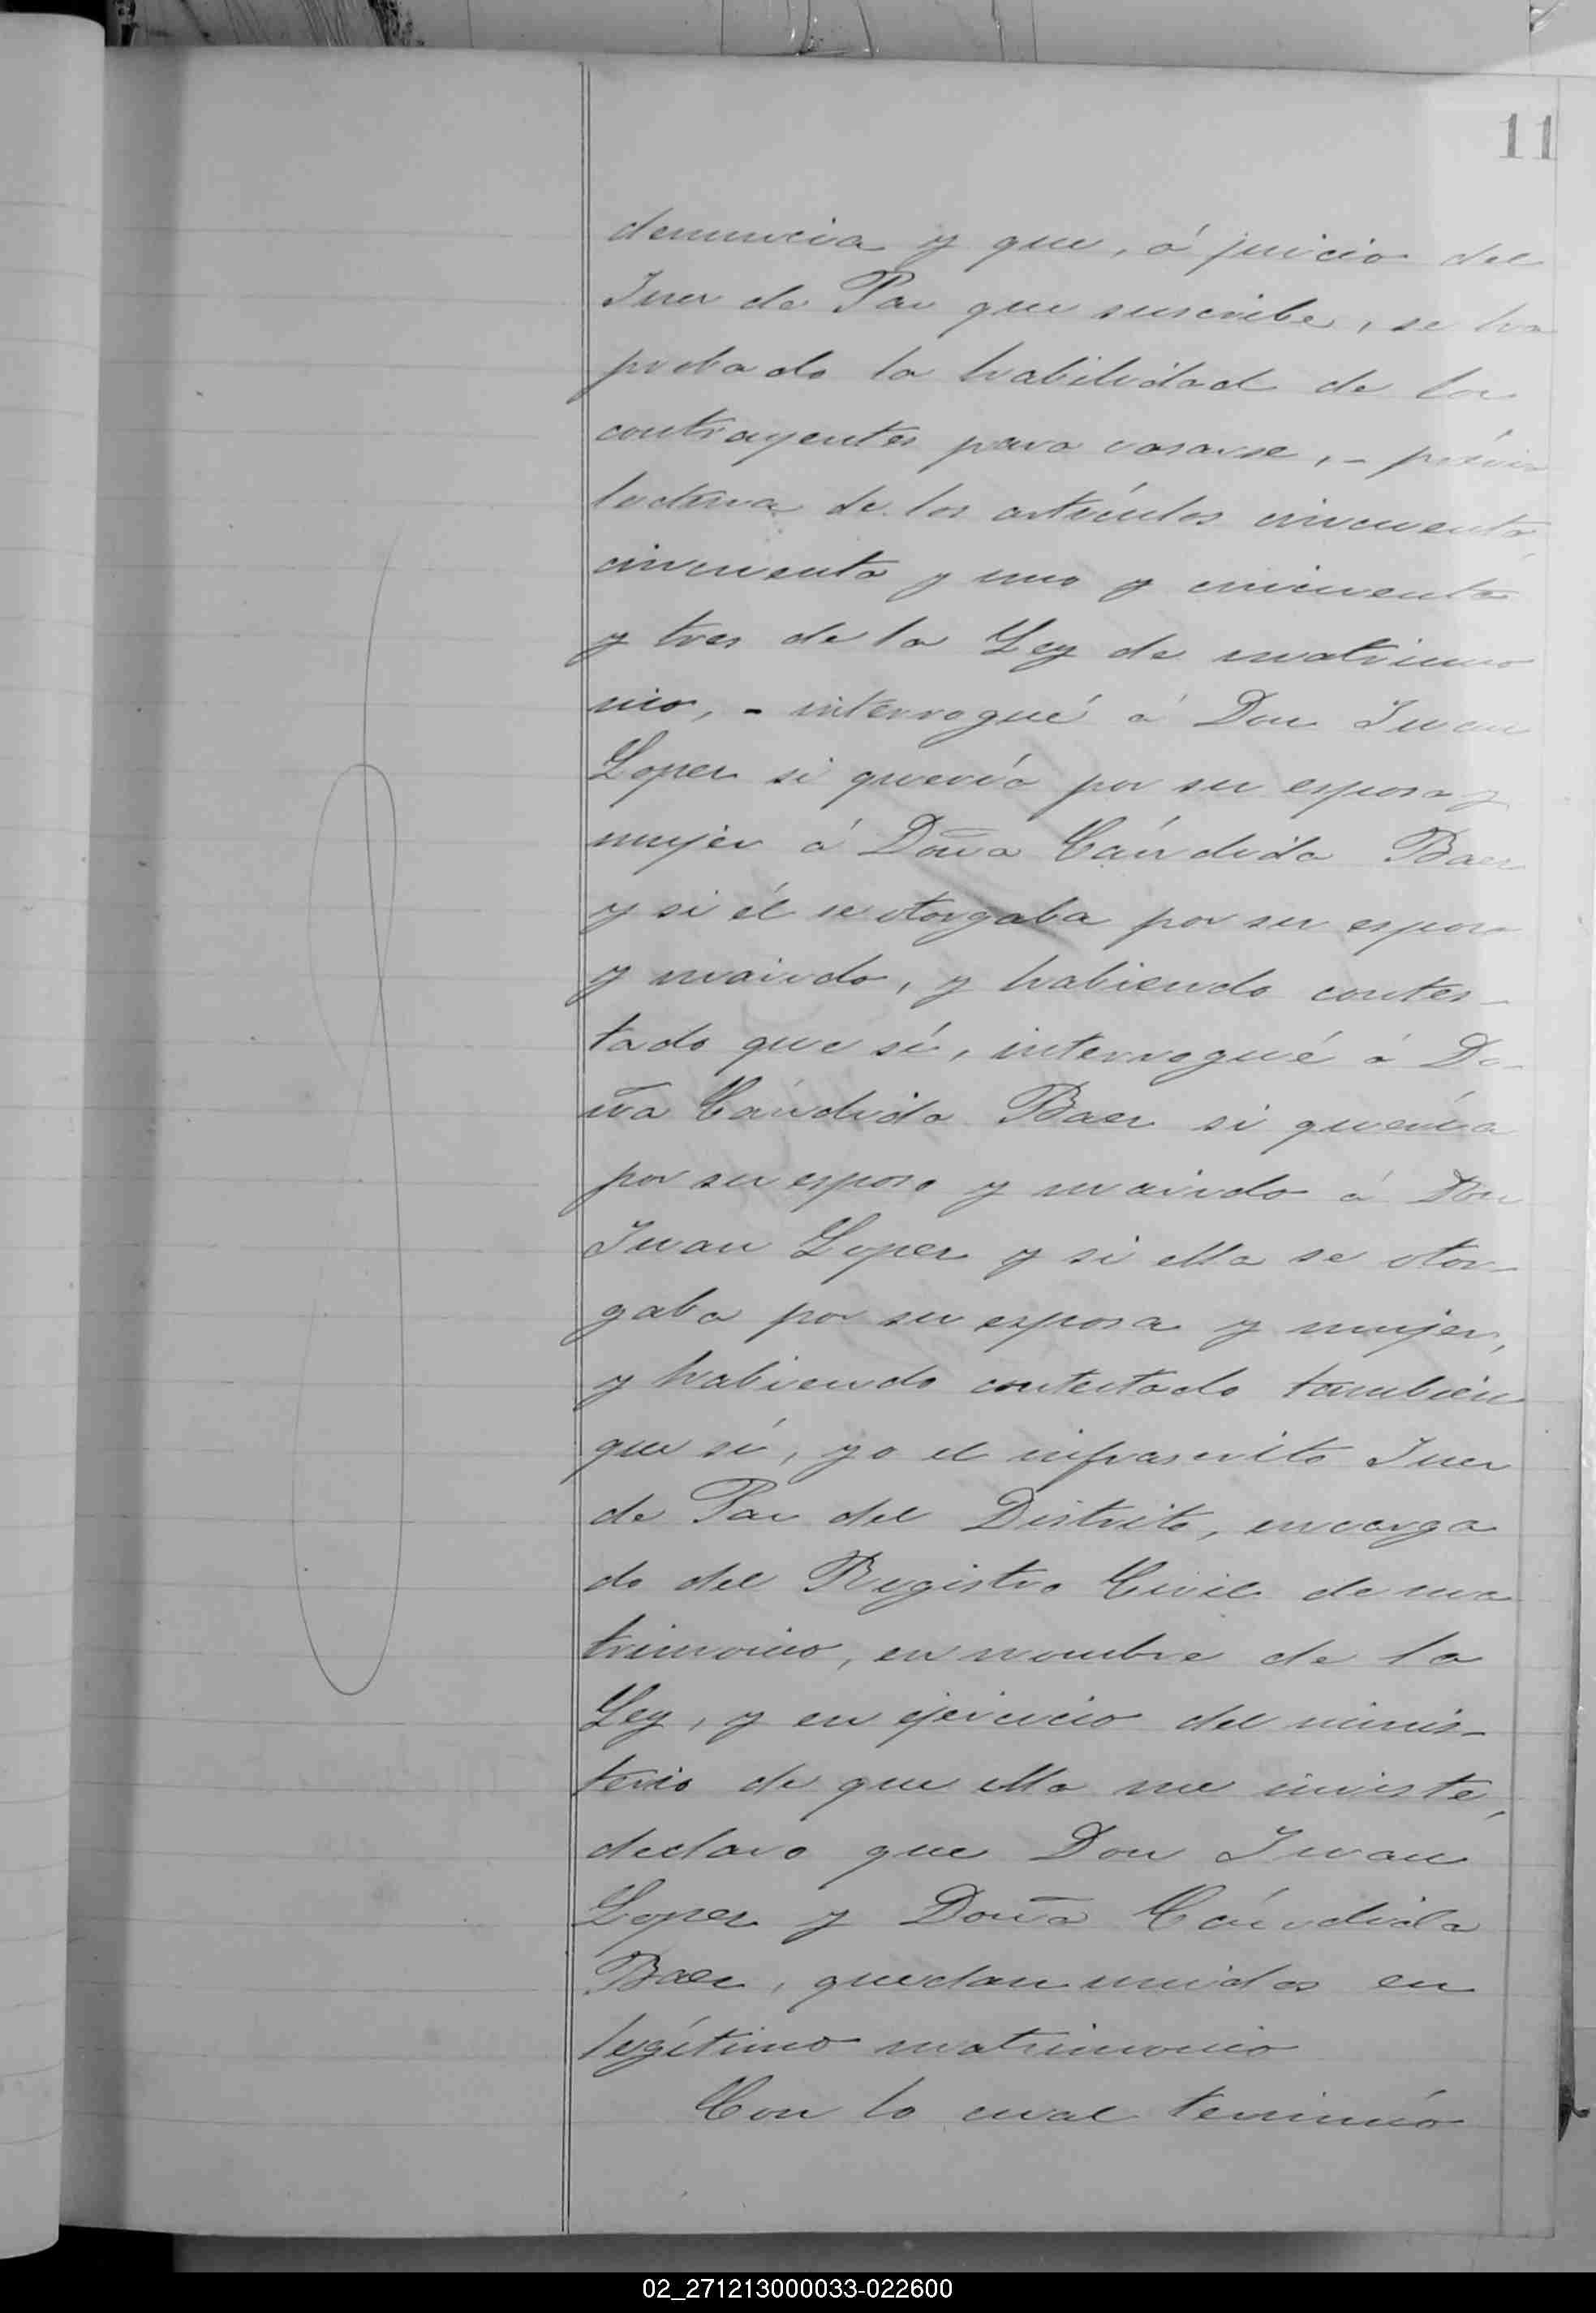 11
denuncia y que, á juicio del
Juez de Paz que suscribe, se ha
probado la habilidad de los
contrayentes para casarse, - prévia
lectura de los artículos cincuenta,
cincuenta y uno y cincuenta
y tres de la Ley de matrimo
nio, - interrogué á Don Juan
Lopez si quería por su esposa y
mujer á Doña Cándida Baez
y si él se otorgaba por su esposo
y marido, y habiendo contes-
tado que sí, interrogué á Do-
ña Cándida Baez si quería
por su esposo y marido á Don
Juan Lopez y si ella se otor-
gaba por su esposa y mujer,
y habiendo contestado también
que sí, yo el infrascrito Juez
de Paz del Distrito, encarga
do del Registro Civil de ma
trimonio, en nombre de la
Ley, y en ejercicio del minis-
terio de que ella me inviste,
declaro que Don Juan
Lopez y Doña Cándida
Baez, quedan unidos en
legítimo matrimonio
Con lo cual terminó
02_271213000033-022600